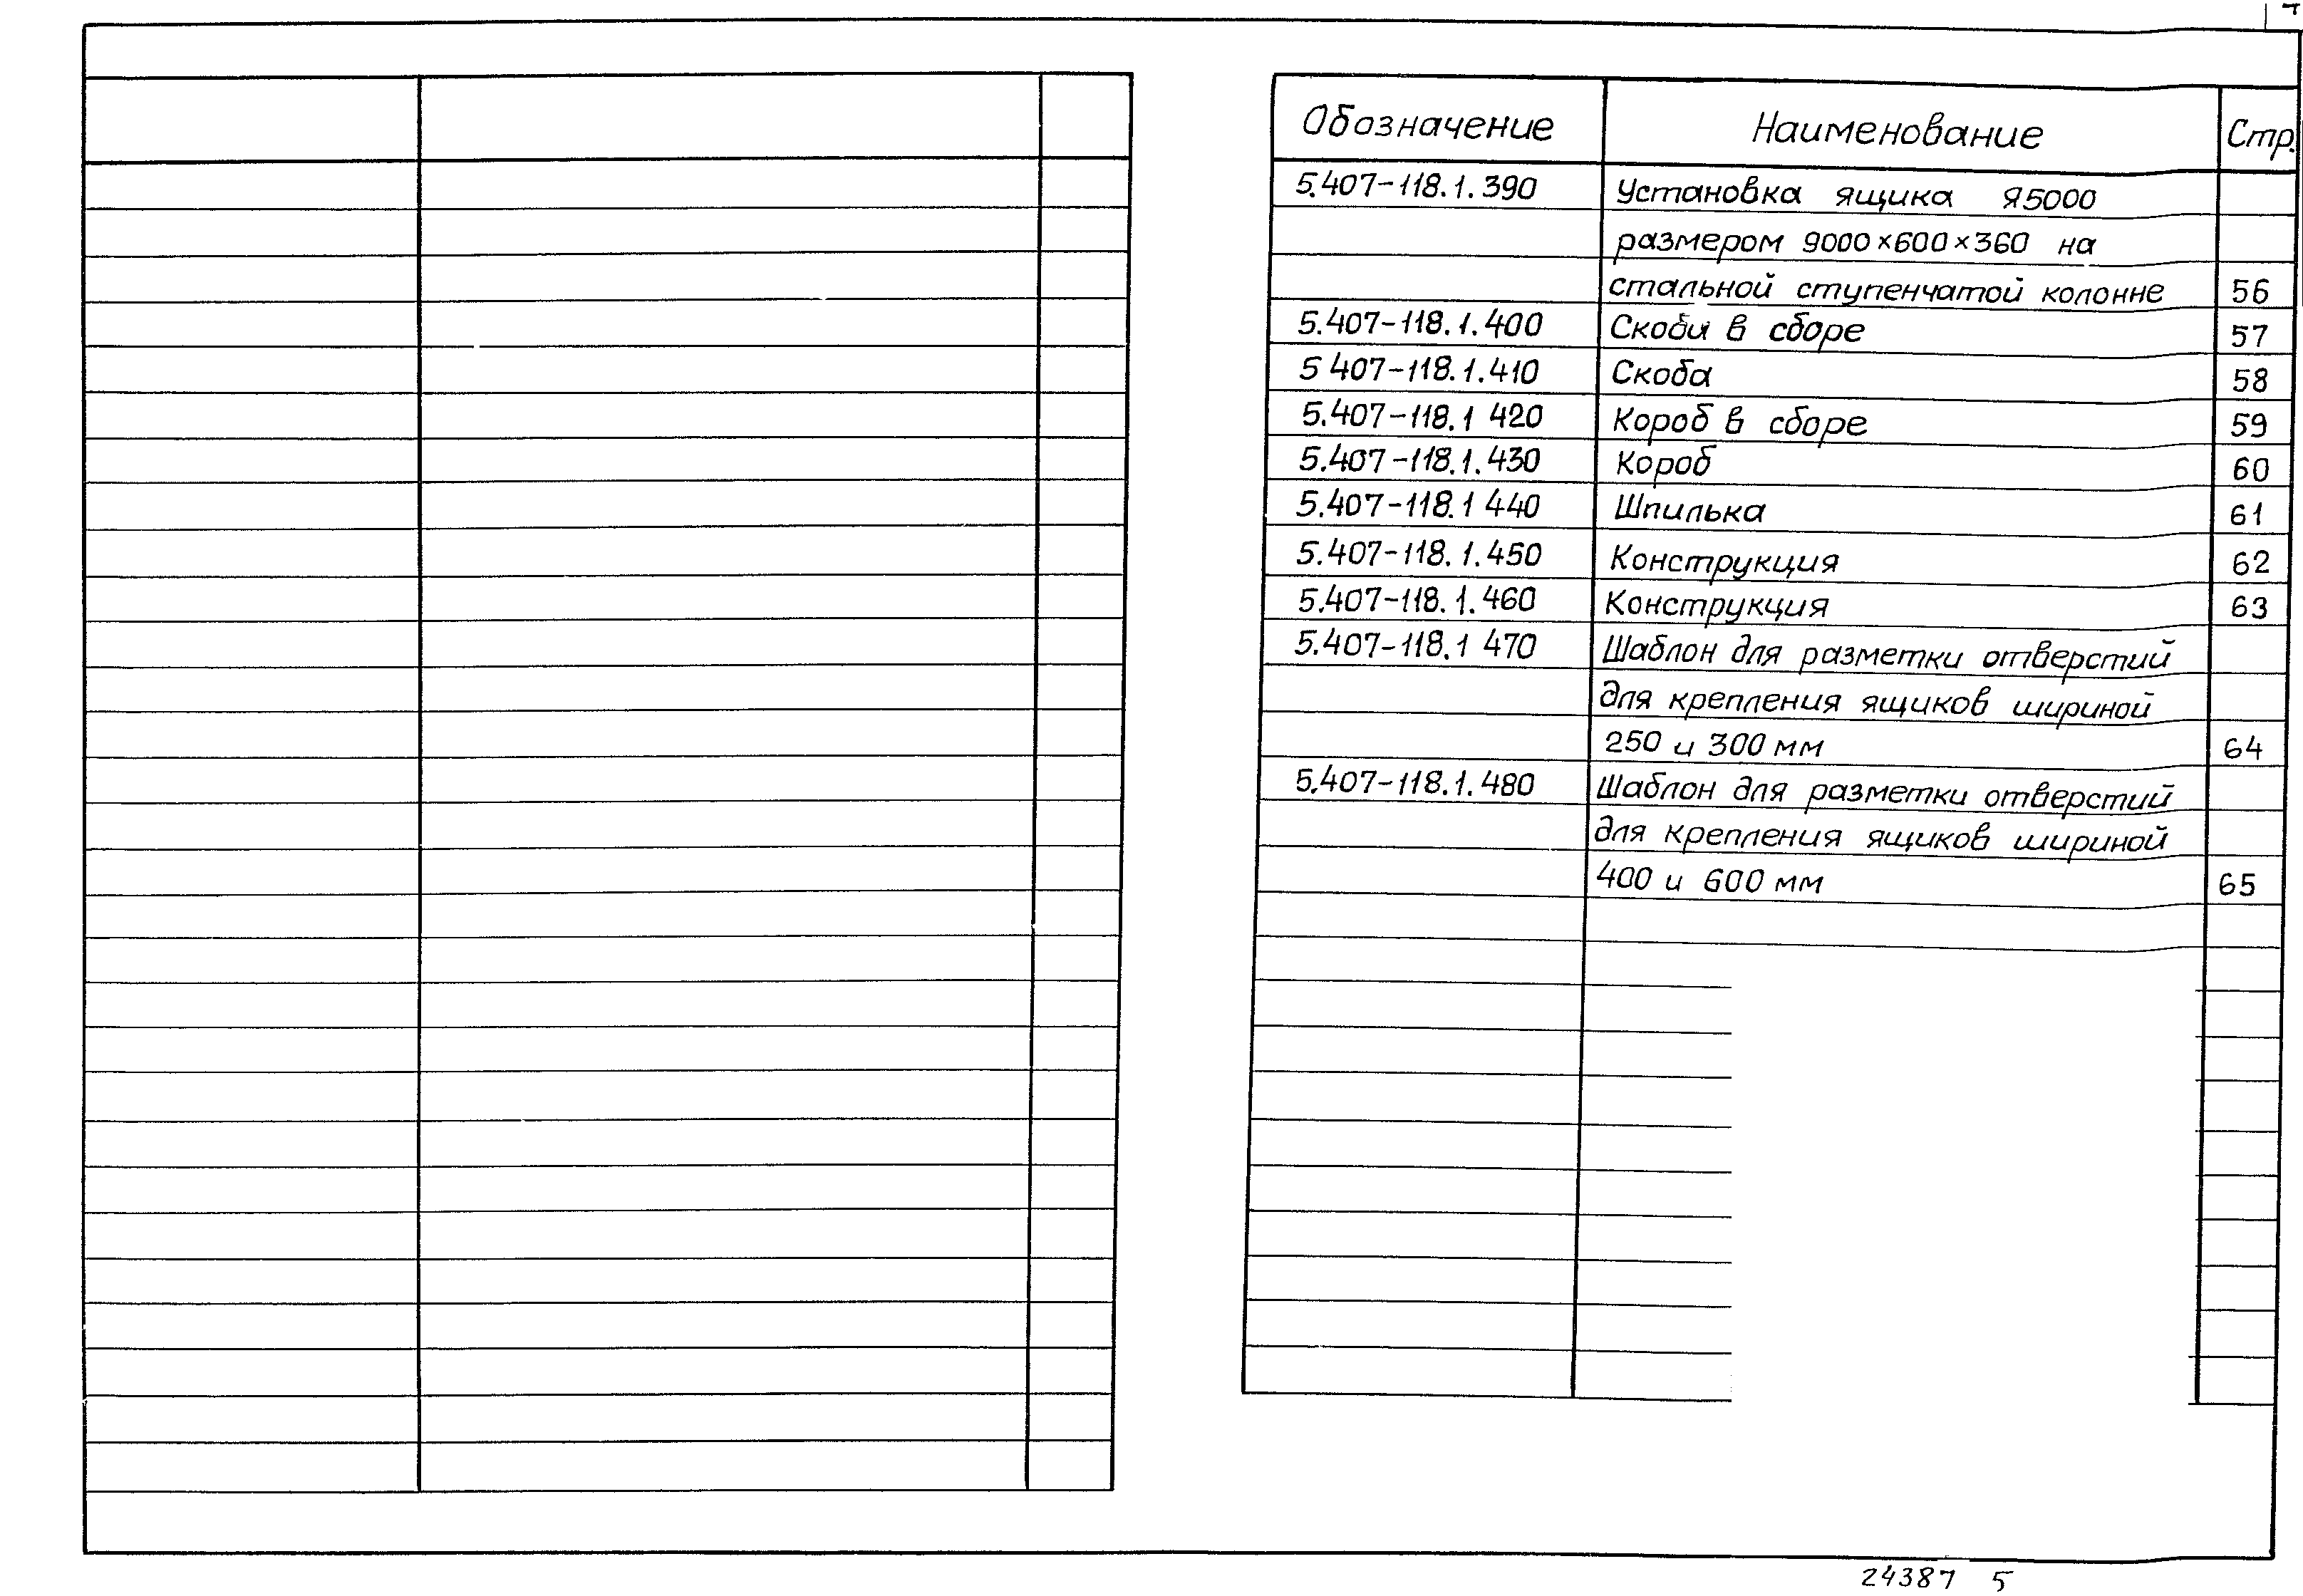 Обозначение Наименование Стр.
5.407-118.1.390 Установка ящика Я5000
размером 9000×600×360 на
стальной ступенчатой колонне 56
5.407-118.1.400 Скоби в сборе 57
5 407-118.1.410 Скоба 58
5.407-118.1 420 Короб в сборе 59
5.407-118.1.430 Короб 60
5.407-118.1 440 Шпилька 61
5.407-118.1.450 Конструкция 62
5.407-118.1.460 Конструкция 63
5.407-118.1 470 Шаблон для разметки отверстий
для крепления ящиков шириной
250 и 300 мм 64
5.407-118.1.480 Шаблон для разметки отверстий
для крепления ящиков шириной
400 и 600 мм 65
24387 5